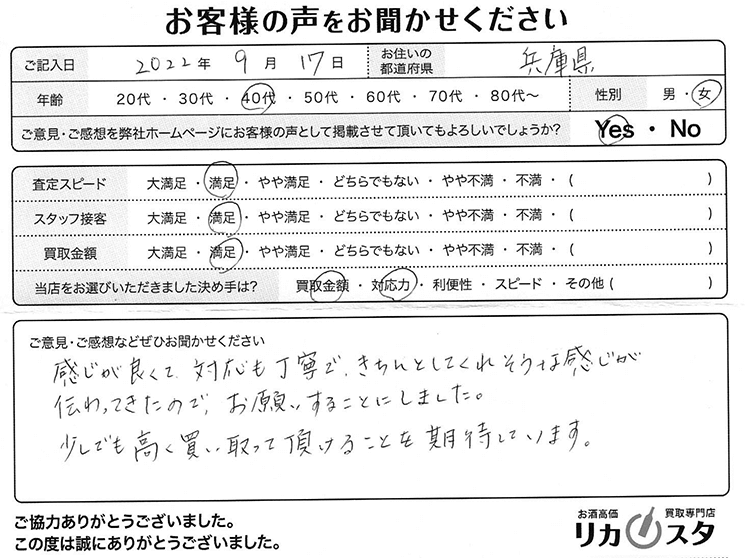 お客様の声をお聞かせください
ご記入日 2022年 9月 17日 お住いの都道府県 兵庫県
年齢 20代・30代・40代・50代・60代・70代・80代〜 性別 男・女
ご意見・ご感想を弊社ホームページにお客様の声として掲載させて頂いてもよろしいでしょうか? Yes・No
査定スピード 大満足・満足・やや満足・どちらでもない・やや不満・不満・( )
スタッフ接客 大満足・満足・やや満足・どちらでもない・やや不満・不満・( )
買取金額 大満足・満足・やや満足・どちらでもない・やや不満・不満・( )
当店をお選びいただきました決め手は? 買取金額・対応力・利便性・スピード・その他( )
ご意見・ご感想などぜひお聞かせください
感じが良くて、対応も丁寧で、きちんとしてくれそうな感じが
伝わってきたので、お願いすることにしました。
少しでも高く買い取って頂けることを期待しています。
ご協力ありがとうございました。
この度は誠にありがとうございました。
お酒高価 買取専門店
リカスタ